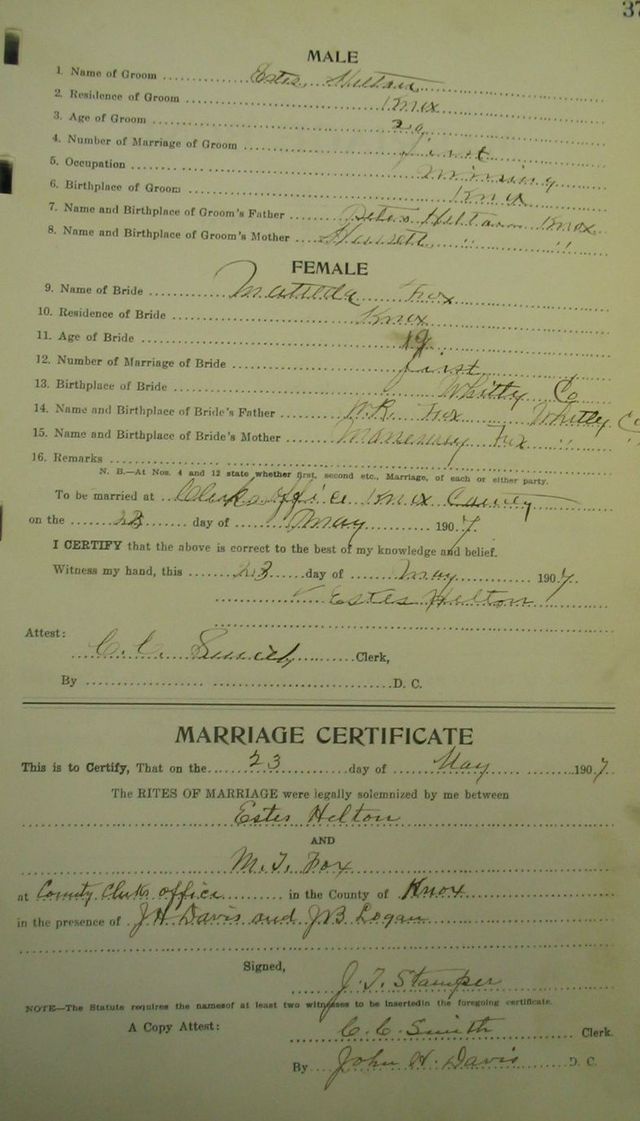 37
MALE
1. Name of Groom Estes Hilton
2. Residence of Groom Knox
3. Age of Groom 29
4. Number of Marriage of Groom first
5. Occupation mining
6. Birthplace of Groom Knox
7. Name and Birthplace of Groom's Father Heltonn Knox
8. Name and Birthplace of Groom's Mother " "
FEMALE
9. Name of Bride Matilda Fox
10. Residence of Bride Knox
11. Age of Bride 19
12. Number of Marriage of Bride first
13. Birthplace of Bride Whitly Co
14. Name and Birthplace of Bride's Father W.R. Fox Whitley Co
15. Name and Birthplace of Bride's Mother Fox " "
16. Remarks
N. B.—At Nos. 4 and 12 state whether first, second etc., Marriage, of each or either party.
To be married at Clerks office Knox County
on the 23 day of May 1907.
I CERTIFY that the above is correct to the best of my knowledge and belief.
Witness my hand, this 23 day of May 1907.
Estes Helton
Attest:
C. C. Smith Clerk,
By D. C.
MARRIAGE CERTIFICATE
This is to Certify, That on the 23 day of May 1907.
The RITES OF MARRIAGE were legally solemnized by me between
Estes Helton
AND
M. T. Fox
at County Clerks office in the County of Knox
in the presence of J H Davis and J B Logan
Signed,
J. T. Stamper
NOTE—The Statute requires the namesof at least two witnesses to be insertedin the foregoing certificate.
A Copy Attest: C. C. Smith Clerk.
By John H. Davis D. C.